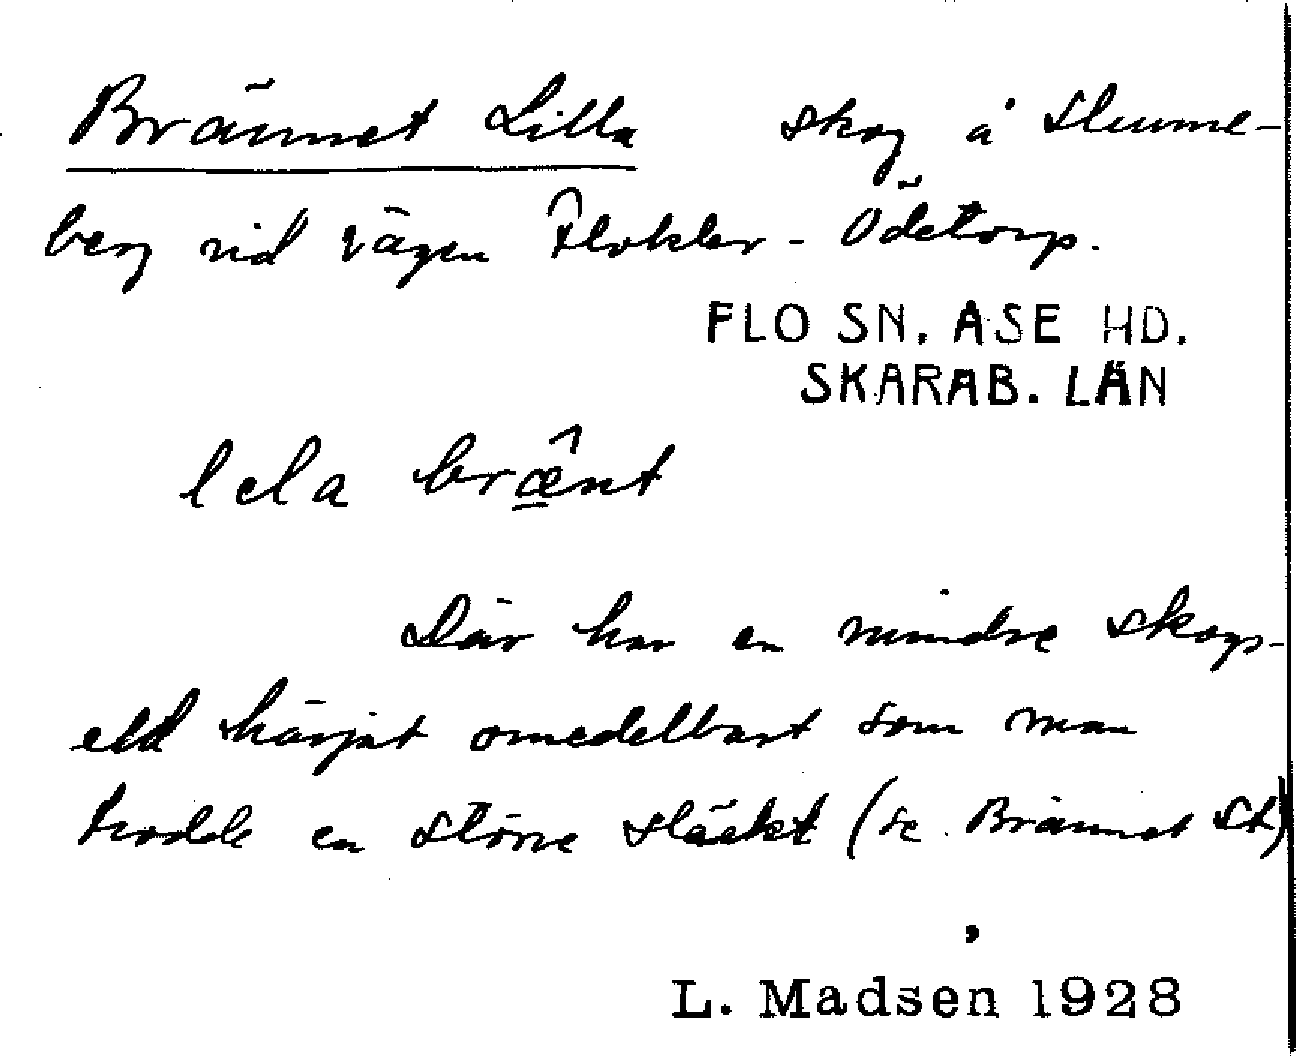 Brännet Lilla skog å Hunne-
berg vid vägen Flokler - Ödetorp.
FLO SN. ÅSE HD.
SKARAB. LÄN
lela brænt
Där har en mindre skogs-
eld härjat omedelbart som man
trodde en större släckt (se. Brännet St)
L. Madsen 1928